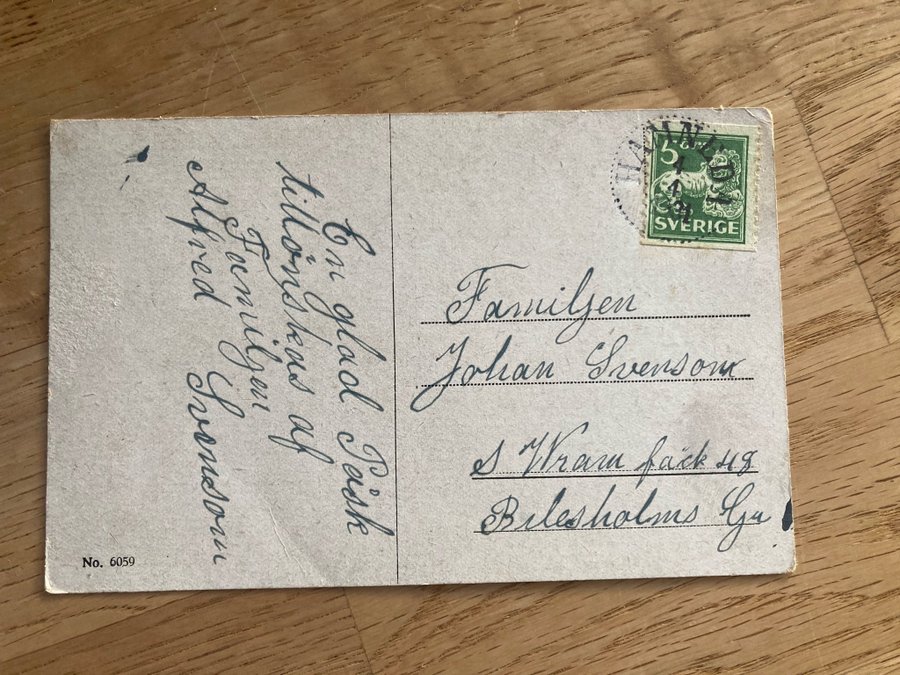 En glad Påsk
tillönskas af
Familjen
Alfred Svensson
No. 6059
5
SVERIGE
4
4
Familjen
Johan Svensson
S Wram fack 48
Bilesholms Ga